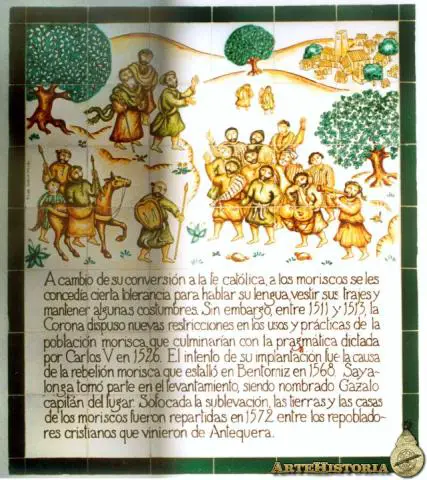 A cambio de su conversión a la fe católica, a los moriscos se les
concedía cierta tolerancia para hablar su lengua, vestir sus trajes y
mantener algunas costumbres. Sin embargo, entre 1511 y 1513, la
Corona dispuso nuevas restricciones en los usos y prácticas de la
población morisca, que culminarían con la pragmática dictada
por Carlos V en 1526. El intento de su implantación fue la causa
de la rebelión morisca que estalló en Bentomiz en 1568. Saya-
longa tomó parte en el levantamiento, siendo nombrado Gazalo
capitán del lugar. Sofocada la sublevación, las tierras y las casas
de los moriscos fueron repartidas en 1572 entre los repoblado-
res cristianos que vinieron de Antequera.
ARTEHISTORIA